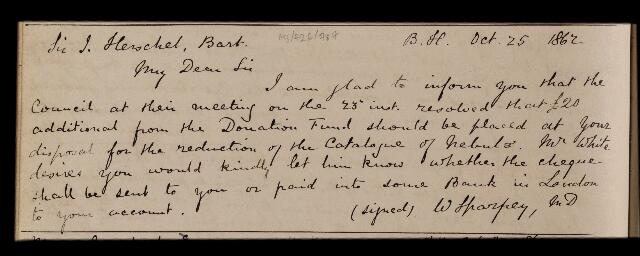 Sir J. Herschel, Bart. B.H. Oct. 25 1862
My Dear Sir
I am glad to inform you that the
Council at their meeting on the 23d inst. resolved that £20
additional from the Donation Fund should be placed at your
disposal for the reduction of the Catalogue of Nebulæ. Mr White
desires you would kindly let him know whether the cheque
shall be sent to you or paid into some Bank in London
to your account. (signed) W Sharpey, MD